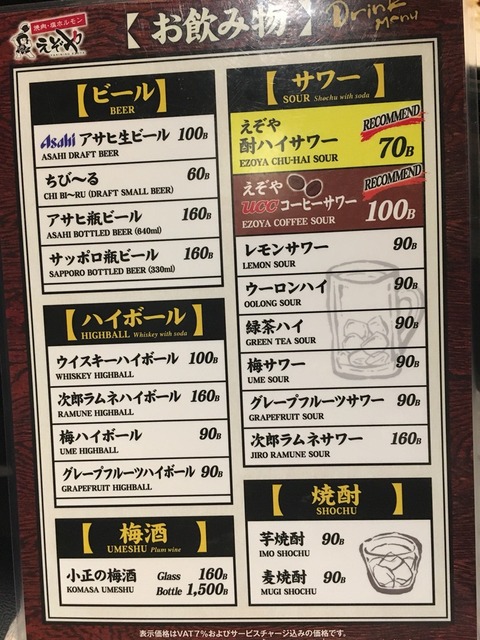 焼肉・塩ホルモン
えぞや
【お飲み物】
Drink Menu
【ビール】
BEER
Asahi アサヒ生ビール 100B
ASAHI DRAFT BEER
ちび〜る 60B
CHI BI〜RU (DRAFT SMALL BEER)
アサヒ瓶ビール 160B
ASAHI BOTTLED BEER (640ml)
サッポロ瓶ビール 160B
SAPPORO BOTTLED BEER (330ml)
【ハイボール】
HIGHBALL Whiskey with soda
ウイスキーハイボール 100B
WHISKEY HIGHBALL
次郎ラムネハイボール 160B
RAMUNE HIGHBALL
梅ハイボール 90B
UME HIGHBALL
グレープフルーツハイボール 90B
GRAPEFRUIT HIGHBALL
【梅酒】
UMESHU Plum wine
小正の梅酒 Glass 160B
KOMASA UMESHU Bottle 1,500B
【サワー】
SOUR Shochu with soda
RECOMMEND
えぞや
酎ハイサワー 70B
EZOYA CHU-HAI SOUR
RECOMMEND
えぞや
UCCコーヒーサワー 100B
EZOYA COFFEE SOUR
レモンサワー 90B
LEMON SOUR
ウーロンハイ 90B
OOLONG SOUR
緑茶ハイ 90B
GREEN TEA SOUR
梅サワー 90B
UME SOUR
グレープフルーツサワー 90B
GRAPEFRUIT SOUR
次郎ラムネサワー 160B
JIRO RAMUNE SOUR
【焼酎】
SHOCHU
芋焼酎 90B
IMO SHOCHU
麦焼酎 90B
MUGI SHOCHU
表示価格はVAT7%およびサービスチャージ込みの価格です。